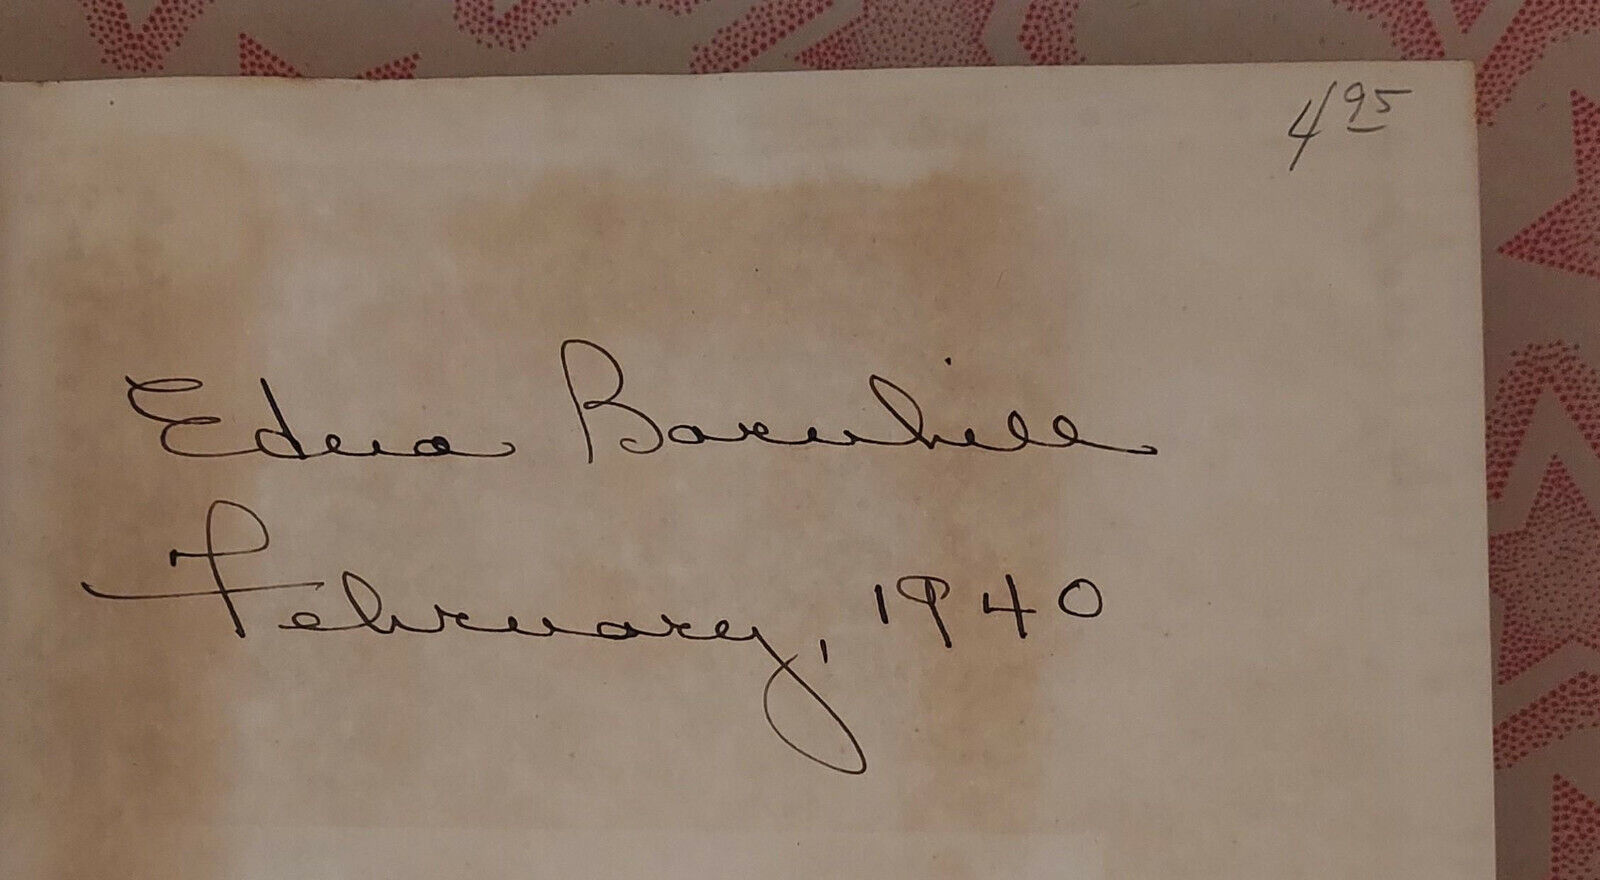 4 95
Edna Barnhill
February, 1940